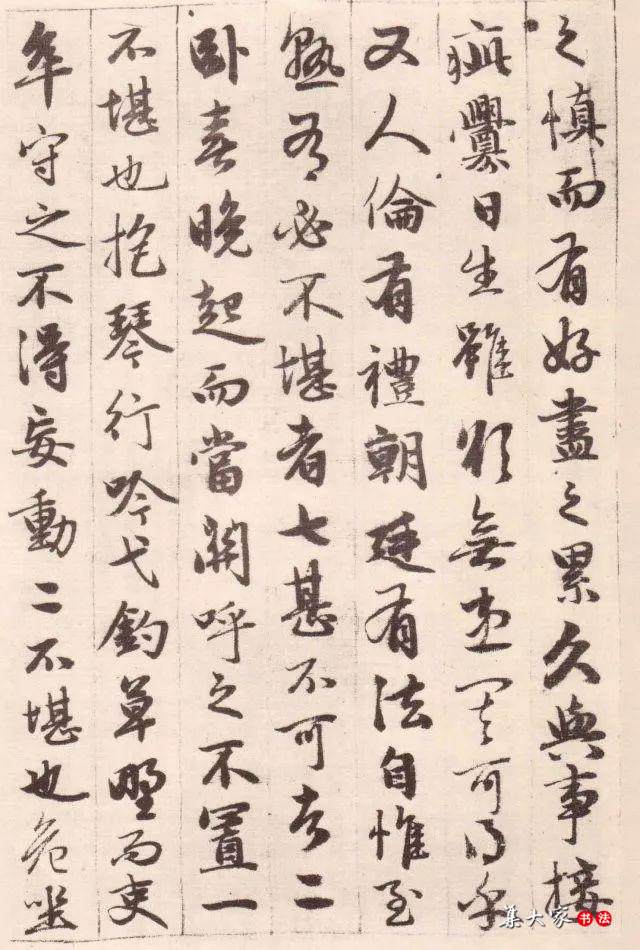 之慎而有好盡之累久與事接
疵釁日生雖欲無患其可得乎
又人倫有禮朝廷有法自惟至
熟有必不堪者七甚不可者二
卧喜晚起而當關呼之不置一
不堪也抱琴行吟弋釣草野而吏
卒守之不得妄動二不堪也危坐
集大家书法